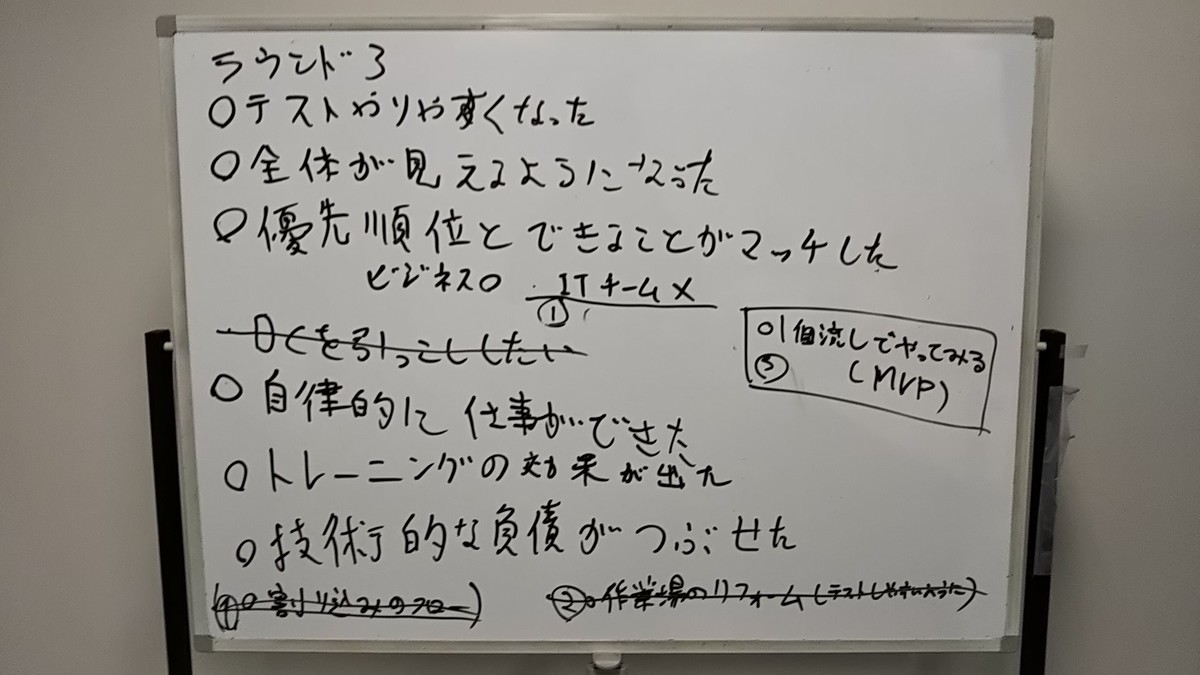 ラウンド3
○テストやりやすくなった
○全体が見えるようになった
○優先順位とできることがマッチした
ビジネス○ ITチーム×
①
を引っこししたい
○1個流しでやってみる
③ (MVP)
○自律的に仕事ができた
○トレーニングの効果が出た
○技術的な負債がつぶせた
(①○割り込みのフロー)
②○作業場のリフォーム(テストしやすいように)